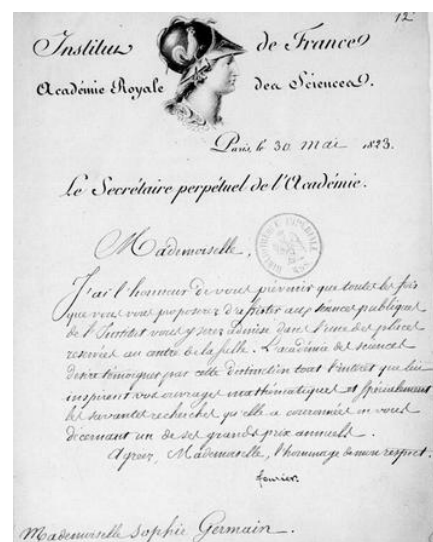 12
Institut de France
Académie Royale des Sciences.
Paris, le 30 mai 1823.
Le Secrétaire perpétuel de l'Académie.
Mademoiselle,
J'ai l'honneur de vous prévenir que toutes les fois
que vous vous proposerez d'assister aux séances publiques
de l'Institut vous y serez admise dans l'une des places
reservées au centre de la salle. L'académie des sciences
desire témoigner par cette distinction tout l'intérêt que lui
inspirent vos ouvrages mathématiques et spécialement
les savantes recherches qu'elle a couronnées en vous
décernant un de ses grands prix annuels.
Agréez, Mademoiselle, l'hommage de mon respect.
fourier
Mademoiselle Sophie Germain.